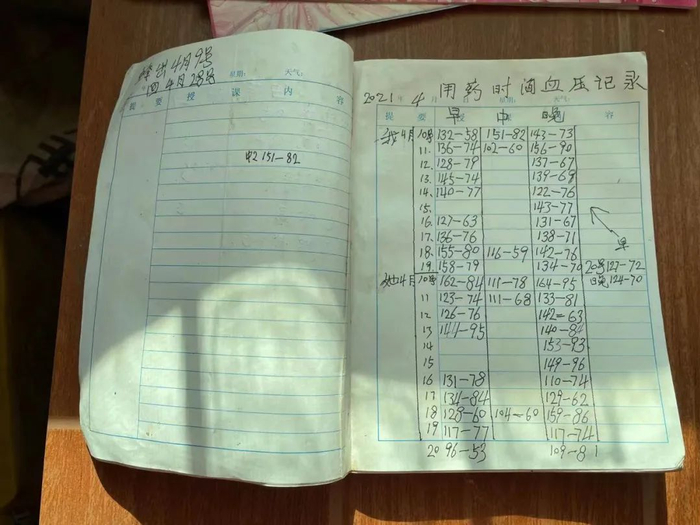 出4月9号
回 4月28号
星期: 天气:
提 要 授 课 内 容
中151-82
2021年 4月 用药时间血压记录
星期: 天气:
早 中 晚
提 要 容
我4月 10号 132-58 151-82 143-73
11. 136-74 102-60 156-90
12. 128-79 137-67
13. 145-74 139-69
14. 140-77 122-76
15. 143-77
16. 127-63 131-67
17. 136-76 138-71
早
18. 155-80 116-59 142-76
19. 158-79 134-70 20号127-72
她4月 10号 162-84 118-78 164-95 日晚124-70
11 123-74 111-68 133-81
12 126-76 142-63
13 144-95 140-84
14 153-93
15 149-96
16 131-78 110-74
17 134-84 129-62
18 128-60 104-60 159-86
19 117-77 117-74
20 96-53 109-81